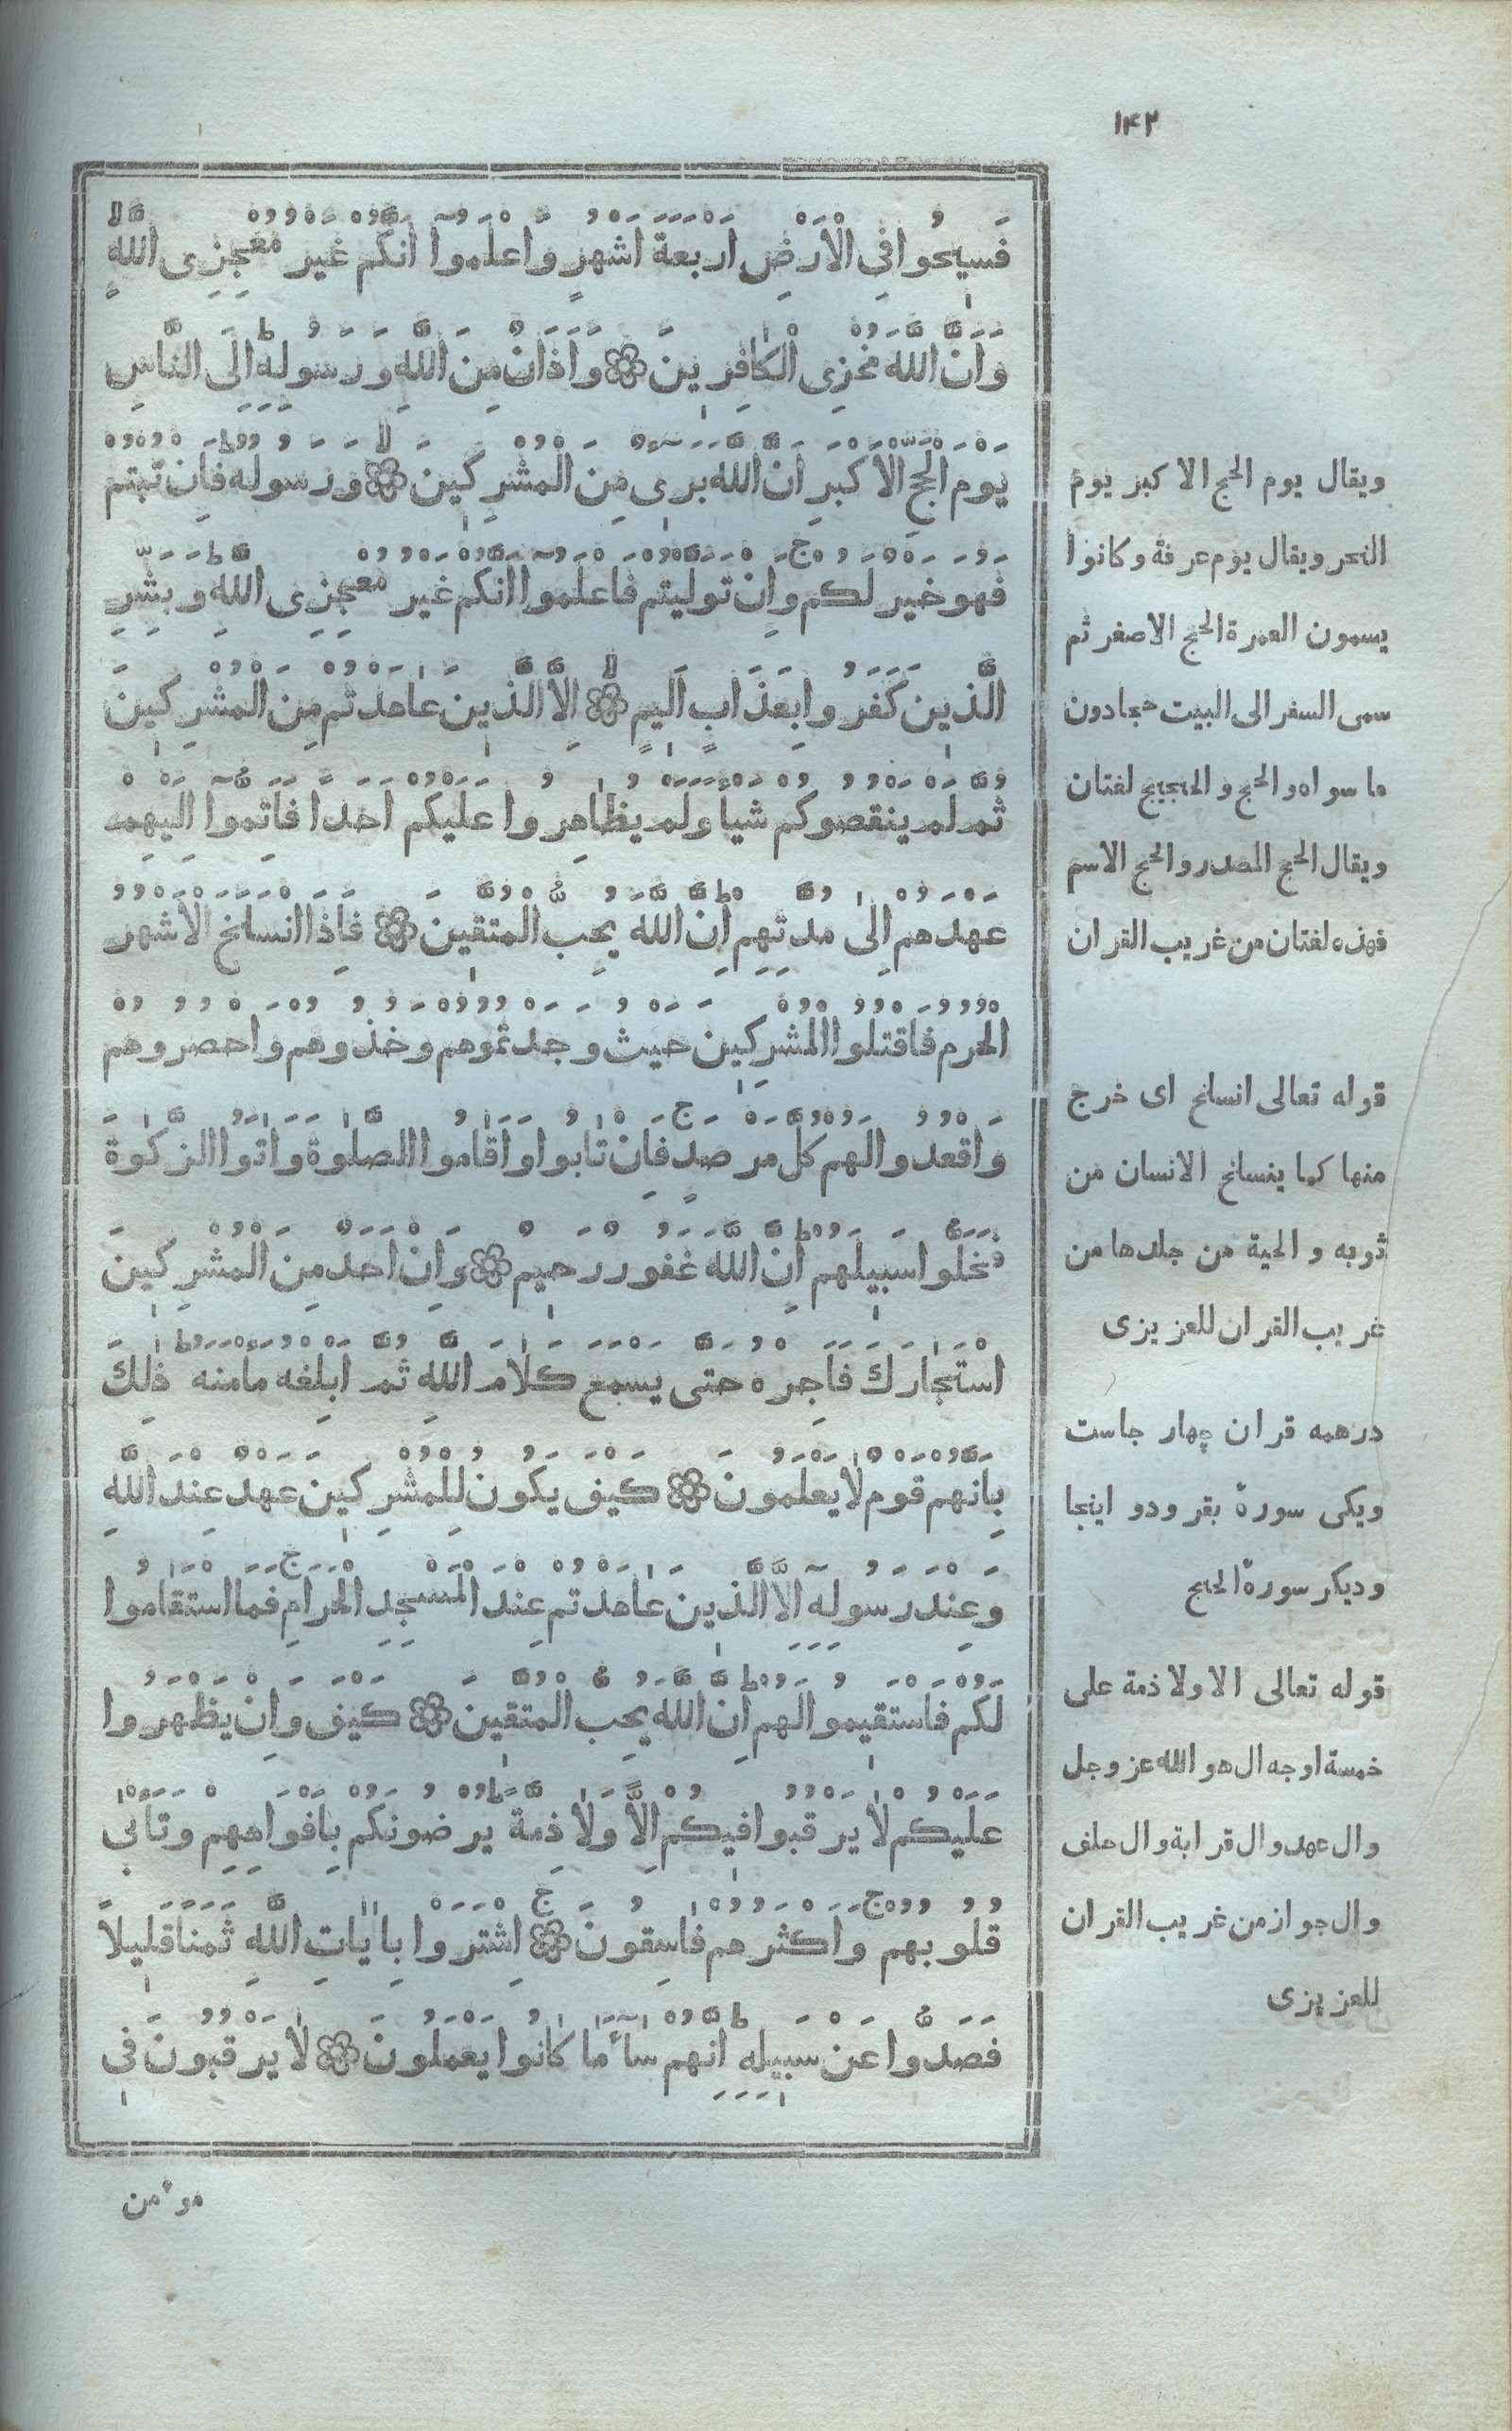 ١۴٢
فَسِيحُوا فِي الْاَرْضِ اَرْبَعَةَ اَشْهُرٍ وَاعْلَمُوٓا اَنَّكُمْ غَيْرُ مُعْجِزِى اللّٰهِ
وَاَنَّ اللّٰهَ مُخْزِى الْكٰافِرِينَ وَاَذٰانٌ مِنَ اللّٰهِ وَرَسُولِهِ اِلَى النّٰاسِ
يَوْمَ الْحَجِّ الْاَكْبَرِ اَنَّ اللّٰهَ بَرِىٓءٌ مِنَ الْمُشْرِكِينَ وَرَسُولُهُ فَاِنْ تُبْتُمْ
فَهُوَ خَيْرٌ لَكُمْ وَاِنْ تَوَلَّيْتُمْ فَاعْلَمُوٓا اَنَّكُمْ غَيْرُ مُعْجِزِى اللّٰهِ وَبَشِّرِ
الَّذِينَ كَفَرُوا بِعَذَابٍ اَلِيمٍ اِلَّا الَّذِينَ عٰاهَدْتُمْ مِنَ الْمُشْرِكِينَ
ثُمَّ لَمْ يَنْقُصُوكُمْ شَيْأً وَلَمْ يُظٰاهِرُوا عَلَيْكُمْ اَحَدًا فَاَتِمُّوٓا اِلَيْهِمْ
عَهْدَهُمْ اِلٰى مُدَّتِهِمْ اِنَّ اللّٰهَ يُحِبُّ الْمُتَّقِينَ فَاِذَا انْسَلَخَ الْاَشْهُرُ
الْحُرُمُ فَاقْتُلُوا الْمُشْرِكِينَ حَيْثُ وَجَدْتُمُوهُمْ وَخُذُوهُمْ وَاحْصُرُوهُمْ
وَاقْعُدُوا لَهُمْ كُلَّ مَرْصَدٍ فَاِنْ تٰابُوا وَاَقٰامُوا الصَّلٰوةَ وَاٰتَوُا الزَّكٰوةَ
فَخَلُّوا سَبِيلَهُمْ اِنَّ اللّٰهَ غَفُورٌ رَحِيمٌ وَاِنْ اَحَدٌ مِنَ الْمُشْرِكِينَ
اسْتَجٰارَكَ فَاَجِرْهُ حَتّٰى يَسْمَعَ كَلٰامَ اللّٰهِ ثُمَّ اَبْلِغْهُ مَأْمَنَهُ ذٰلِكَ
بِاَنَّهُمْ قَوْمٌ لٰا يَعْلَمُونَ كَيْفَ يَكُونُ لِلْمُشْرِكِينَ عَهْدٌ عِنْدَ اللّٰهِ
وَعِنْدَ رَسُولِهِٓ اِلَّا الَّذِينَ عٰاهَدْتُمْ عِنْدَ الْمَسْجِدِ الْحَرَامِ فَمَا اسْتَقٰامُوا
لَكُمْ فَاسْتَقِيمُوا لَهُمْ اِنَّ اللّٰهَ يُحِبُّ الْمُتَّقِينَ كَيْفَ وَاِنْ يَظْهَرُوا
عَلَيْكُمْ لٰا يَرْقُبُوا فِيكُمْ اِلًّا وَلٰا ذِمَّةً يُرْضُونَكُمْ بِاَفْوَاهِهِمْ وَتَأْبٰى
قُلُوبُهُمْ وَاَكْثَرُهُمْ فٰاسِقُونَ اِشْتَرَوْا بِاٰيٰاتِ اللّٰهِ ثَمَنًا قَلِيلاً
فَصَدُّوا عَنْ سَبِيلِهِ اِنَّهُمْ سٰآءَ مٰا كٰانُوا يَعْمَلُونَ لٰا يَرْقُبُونَ فِى
مؤمن
ويقال يوم الحج الاكبر يوم
النحر ويقال يوم عرفة وكانوا
يسمون العمرة الحج الاصغر ثم
سمى السفر الى البيت حجا دون
ما سواه والحج والحجيج لغتان
ويقال الحج المصدر والحج الاسم
فهذه لغتان من غريب القران
قوله تعالى انسلخ اى خرج
منها كما ينسلخ الانسان من
ثوبه و الحية من جلدها من
غريب القران للعزيزى
درهمه قران چهار جاست
ويكى سورة بقر ودو اينجا
وديكر سورة الحج
قوله تعالى الا ولا ذمة على
خمسة اوجه ال هو الله عز وجل
وال عهد وال قرابة وال حلف
وال جواز من غريب القران
للعزيزى